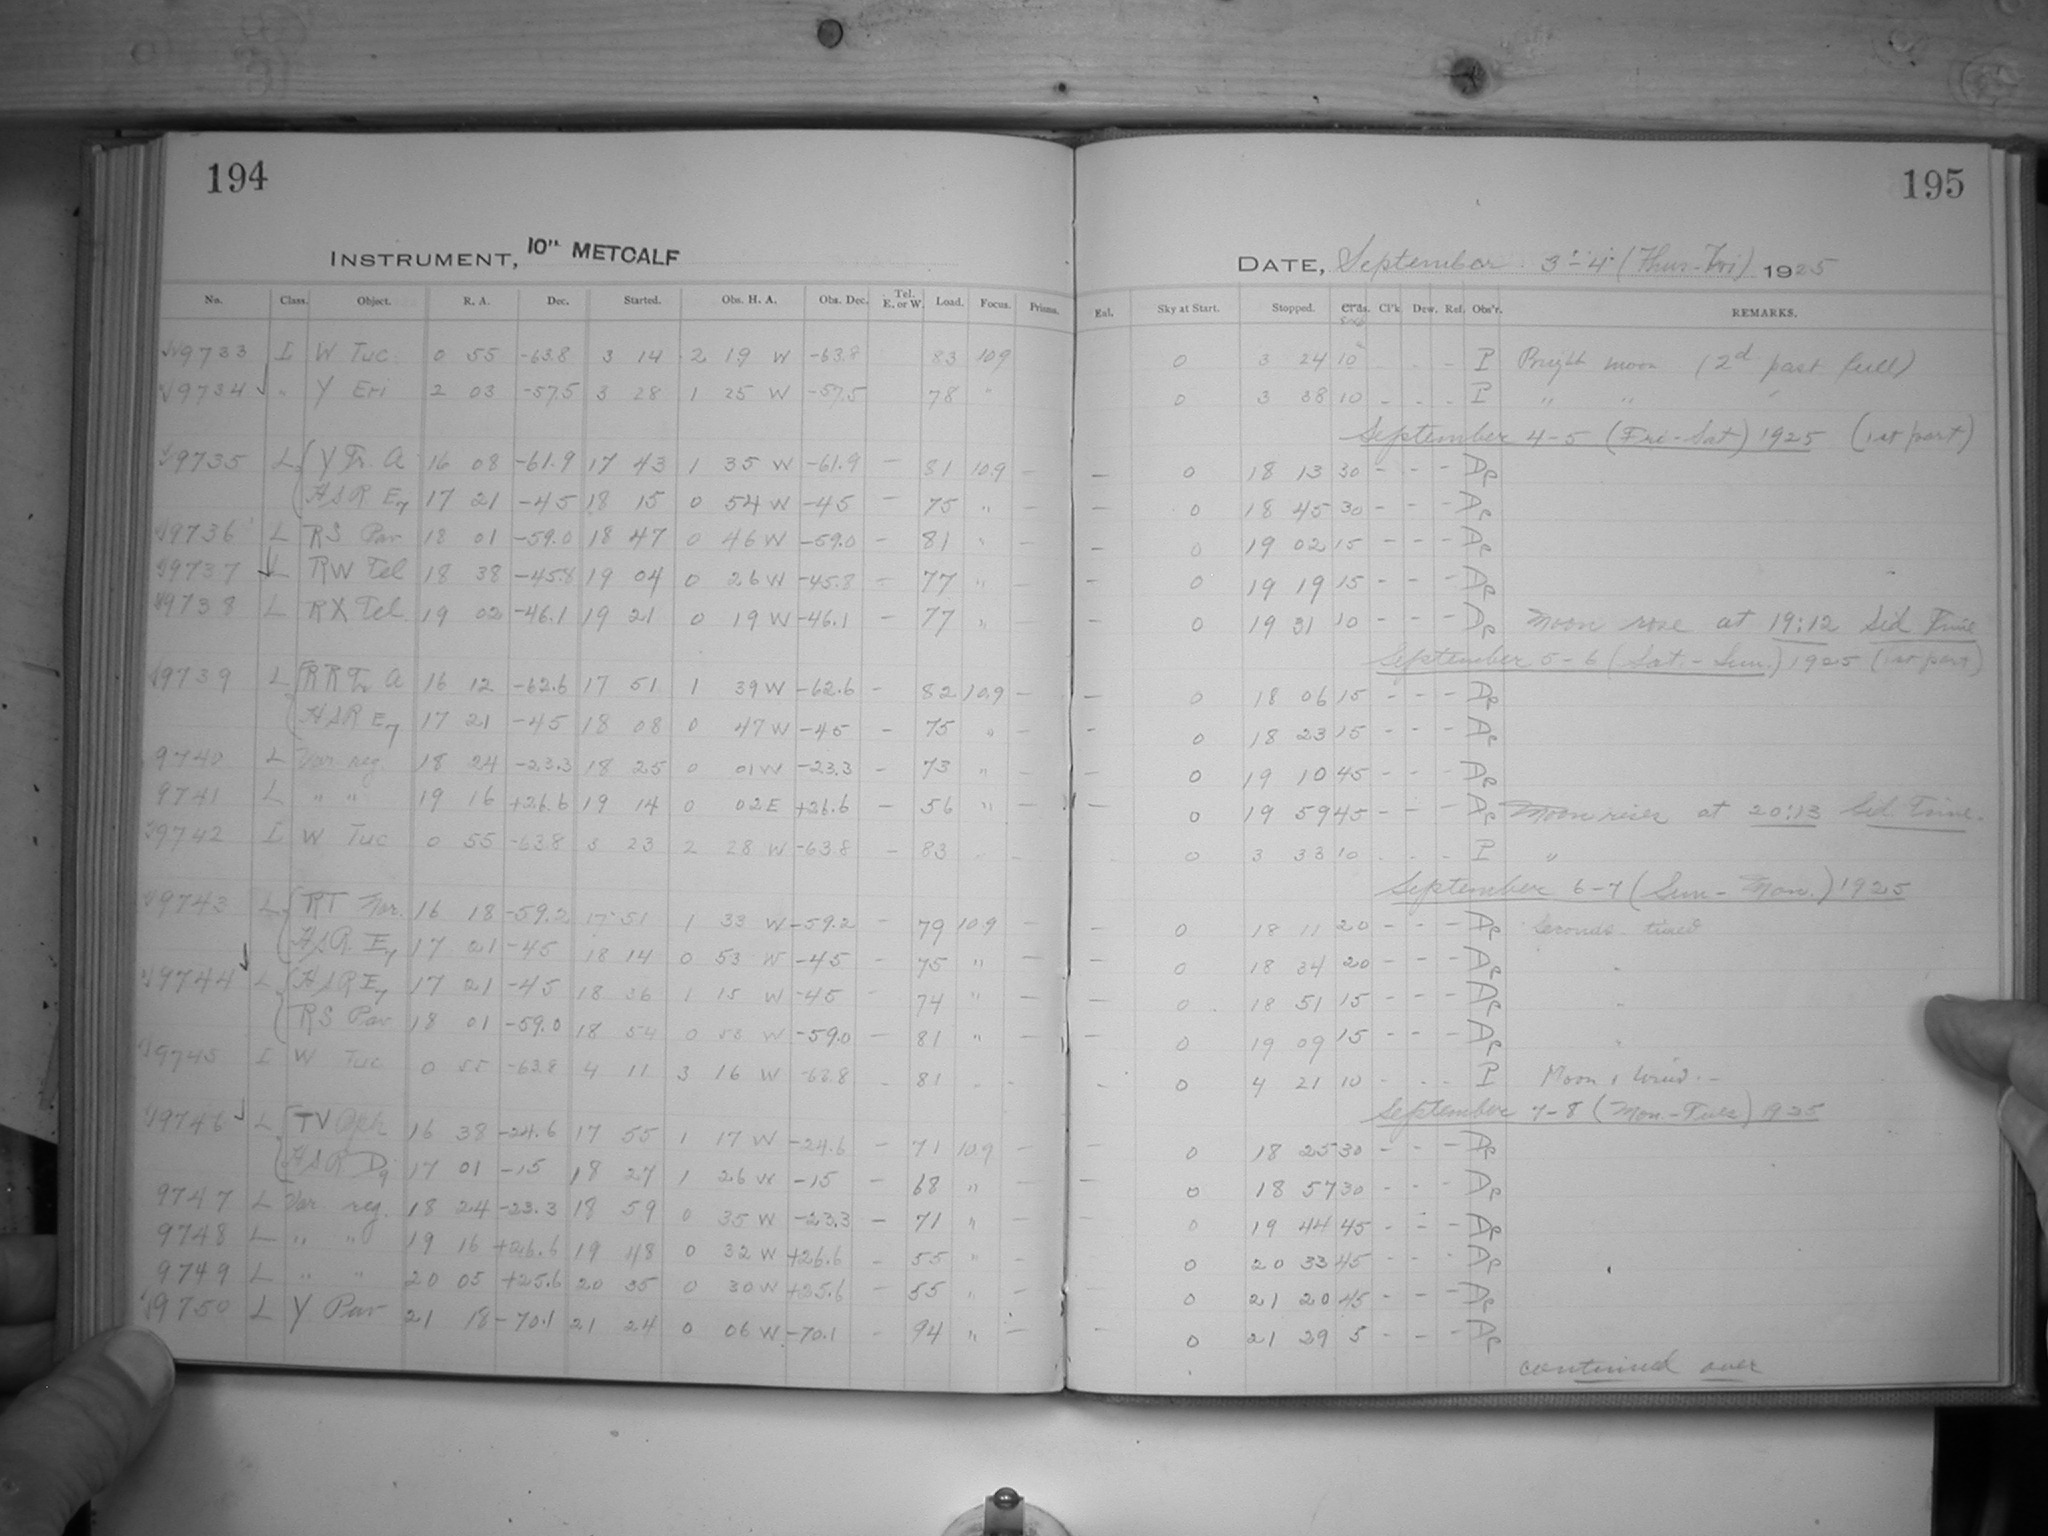 194
INSTRUMENT, 10" METCALF
No. Class. Object. R. A. Dec. Started. Obs. H. A. Obs. Dec. Tel. E. or W. Load. Focus. Prisms.
9733 I W Tuc 0 55 -63.8 3 14 2 19 W -63.8 83 10.9
9734 " Y Eri 2 03 -57.5 3 28 1 25 W -57.5 78 "
9735 L Y Tr. A 16 08 -61.9 17 43 1 35 W -61.9 - 81 10.9 -
HSR E7 17 21 -45 18 15 0 54 W -45 - 75 " -
9736 L RS Pav 18 01 -59.0 18 47 0 46 W -59.0 - 81 " -
9737 L RW Tel 18 38 -45.8 19 04 0 26 W -45.8 - 77 " -
9738 L RX Tel 19 02 -46.1 19 21 0 19 W -46.1 - 77 " -
9739 L RR Tr A 16 12 -62.6 17 51 1 39 W -62.6 - 82 10.9 -
HSR E7 17 21 -45 18 08 0 47 W -45 - 75 " -
9740 L Var. reg. 18 24 -23.3 18 25 0 01 W -23.3 - 73 " -
9741 L " " 19 16 +26.6 19 14 0 02 E +26.6 - 56 " -
9742 I W Tuc 0 55 -63.8 3 23 2 28 W -63.8 - 83 " -
9743 L RT Nor. 16 18 -59.2 17 51 1 33 W -59.2 - 79 10.9 -
HSR E7 17 21 -45 18 14 0 53 W -45 - 75 " -
9744 L HSR E7 17 21 -45 18 36 1 15 W -45 - 74 " -
RS Pav 18 01 -59.0 18 54 0 53 W -59.0 - 81 " -
9745 I W Tuc 0 55 -63.8 4 11 3 16 W -63.8 - 81 - -
9746 L TV Oph 16 38 -24.6 17 55 1 17 W -24.6 - 71 10.9 -
HSR D9 17 01 -15 18 27 1 26 W -15 - 68 " -
9747 L Var. reg. 18 24 -23.3 18 59 0 35 W -23.3 - 71 " -
9748 L " " 19 16 +26.6 19 48 0 32 W +26.6 - 55 " -
9749 L " " 20 05 +25.6 20 35 0 30 W +25.6 - 55 " -
9750 L Y Pav 21 18 -70.1 21 24 0 06 W -70.1 - 94 " -
195
DATE, September 3-4 (Thur-Fri) 1925
Eal. Sky at Start. Stopped. Cl'k Dew. Ref. Obs'r. REMARKS.
0 3 24 10 - - - P Bright moon (2d past full)
0 3 38 10 - - - P " " "
September 4-5 (Fri-Sat) 1925 (1st part)
- 0 18 13 30 - - - Ap
- 0 18 45 30 - - - Ap
- 0 19 02 15 - - - Ap
0 19 19 15 - - - Ap
0 19 31 10 - - - Ap Moon rose at 19:12 Sid Time
September 5-6 (Sat.-Sun.) 1925 (1st part)
- 0 18 06 15 - - - Ap
- 0 18 23 15 - - - Ap
- 0 19 10 45 - - - Ap
- 0 19 59 45 - - - Ap Moon rises at 20:13 Sid Time.
0 3 33 10 - - - P "
September 6-7 (Sun-Mon.) 1925
- 0 18 11 20 - - - Ap Seconds timed
- 0 18 34 20 - - - Ap "
- 0 18 51 15 - - - Ap "
- 0 19 09 15 - - - Ap "
- 0 4 21 10 - - - P Moon & wind. -
September 7-8 (Mon-Tues) 1925
- 0 18 25 30 - - - Ap
- 0 18 57 30 - - - Ap
- 0 19 44 45 - - - Ap
- 0 20 33 45 - - - Ap
- 0 21 20 45 - - - Ap
- 0 21 29 5 - - - Ap
continued over